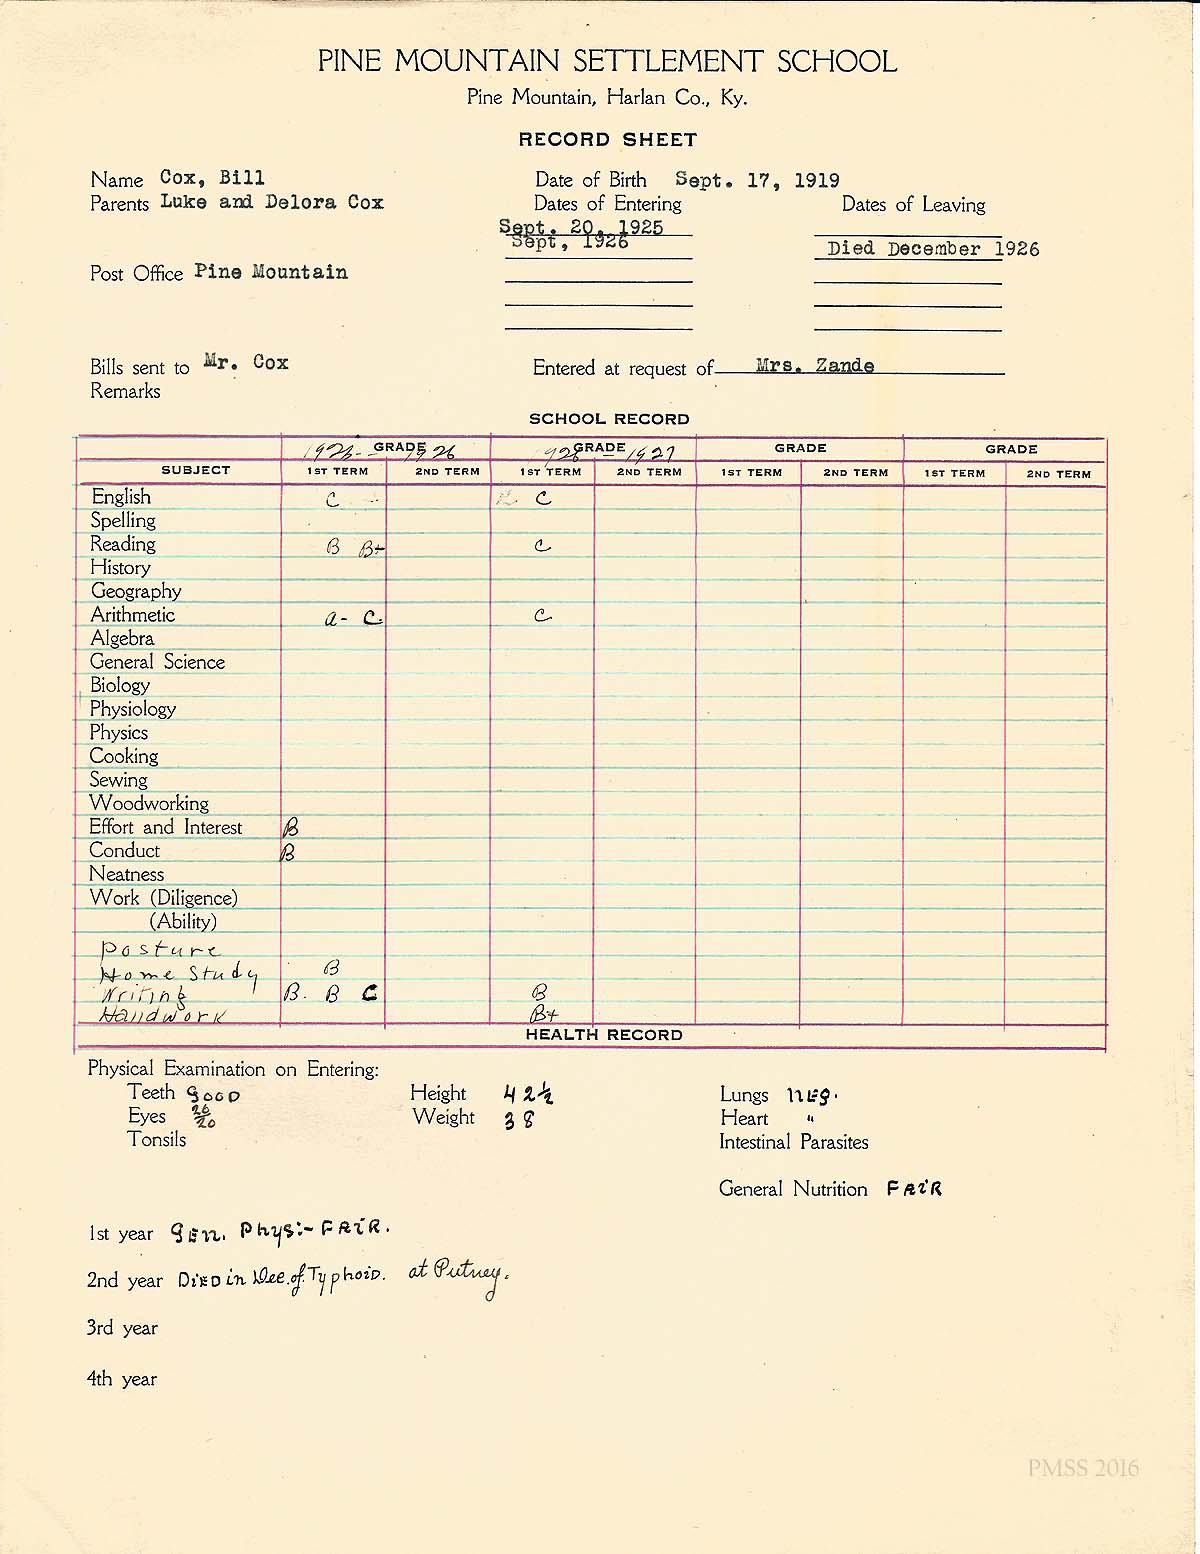 PINE MOUNTAIN SETTLEMENT SCHOOL
Pine Mountain, Harlan Co., Ky.
RECORD SHEET
Name Cox, Bill Date of Birth Sept. 17, 1919
Parents Luke and Delora Cox Dates of Entering Dates of Leaving
Sept. 20, 1925
Sept, 1926 Died December 1926
Post Office Pine Mountain
Bills sent to Mr. Cox Entered at request of Mrs. Zande
Remarks
SCHOOL RECORD
GRADE 1926 GRADE 1927 GRADE GRADE
SUBJECT 1ST TERM 2ND TERM 1ST TERM 2ND TERM 1ST TERM 2ND TERM 1ST TERM 2ND TERM
English C C
Spelling
Reading B B+ C
History
Geography
Arithmetic a- C C
Algebra
General Science
Biology
Physiology
Physics
Cooking
Sewing
Woodworking
Effort and Interest B
Conduct B
Neatness
Work (Diligence)
(Ability)
Posture
Home Study B
Writing B. B C B
Handwork B+
HEALTH RECORD
Physical Examination on Entering:
Teeth GOOD Height 42½ Lungs NEG.
Eyes 20/20 Weight 38 Heart "
Tonsils Intestinal Parasites
General Nutrition FAIR
1st year GEN. Phys:- FAIR.
2nd year DIED in Dec. of Typhoid. at Putney.
3rd year
4th year
PMSS 2016